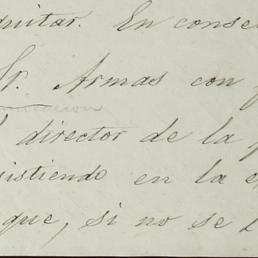 quitar. En conse
Sr. Armas con
director de la
sistiendo en la
que, si no se